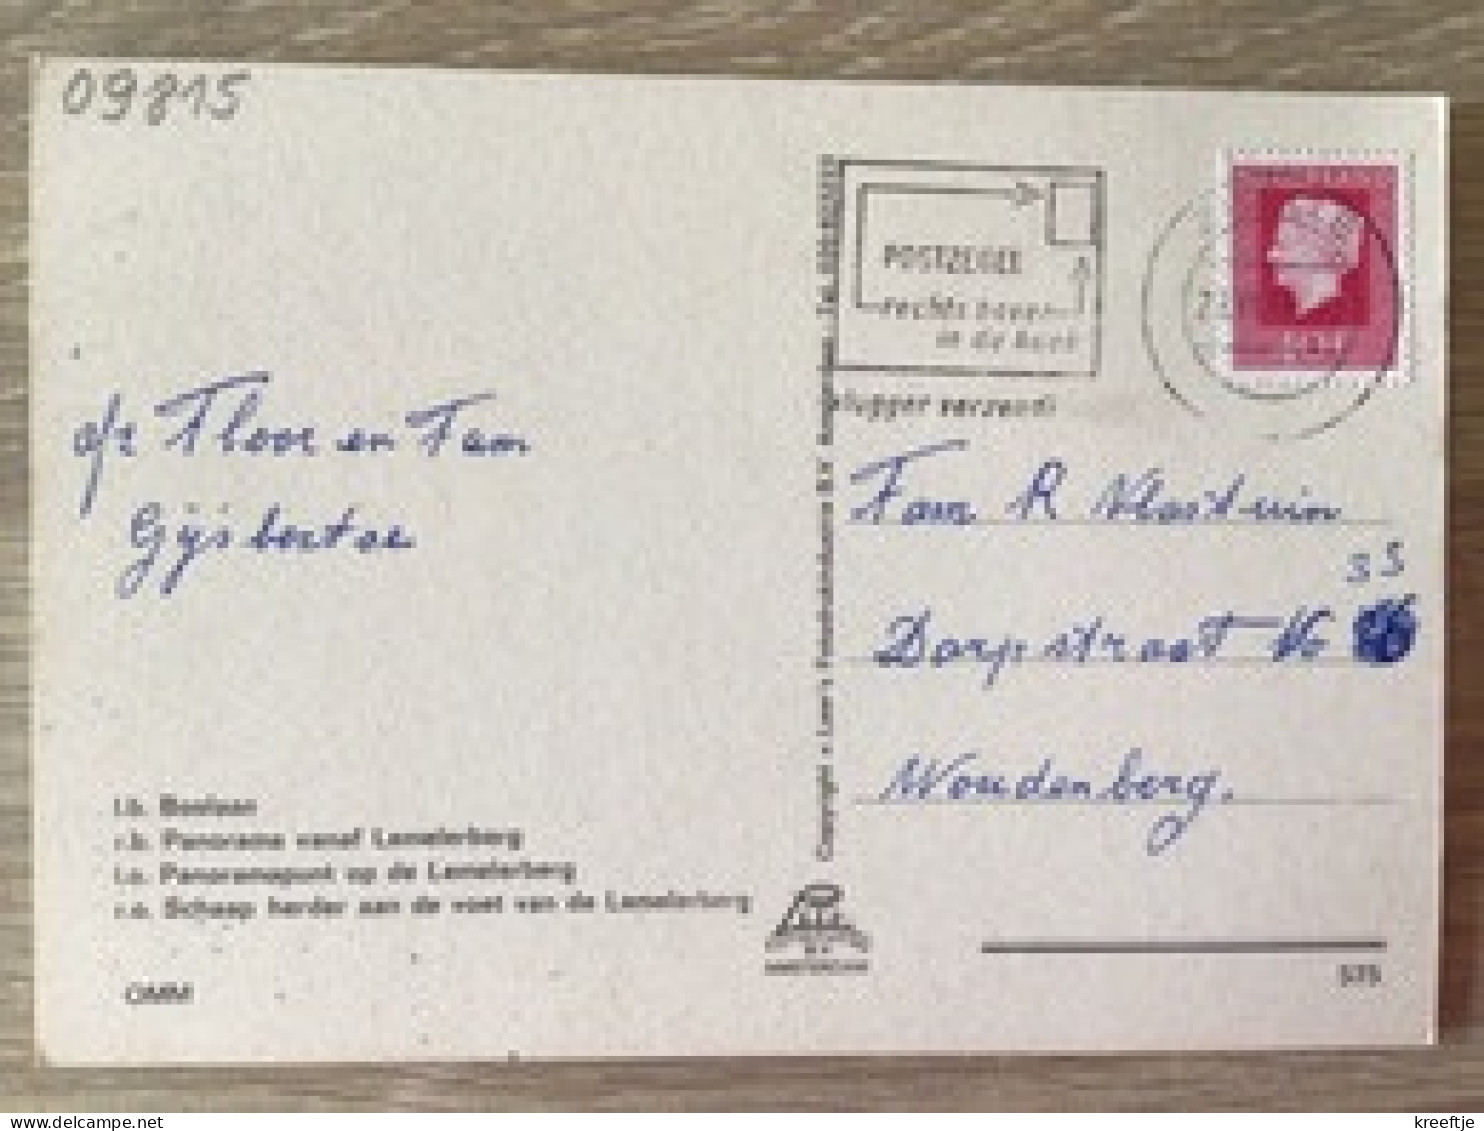 09815
POSTZEGEL
rechts boven
in de hoek
vlugger verzendt
afz Floor en Fam
Gijsbertse
Fam R Vlastuin
35
Dorpstraat No
Woudenberg.
l.b. Boslaan
r.b. Panorama vanaf Lemelerberg
l.o. Panoramapunt op de Lemelerberg
r.o. Schaap herder aan de voet van de Lemelerberg
OMM
AMSTERDAM
575
kreeftje